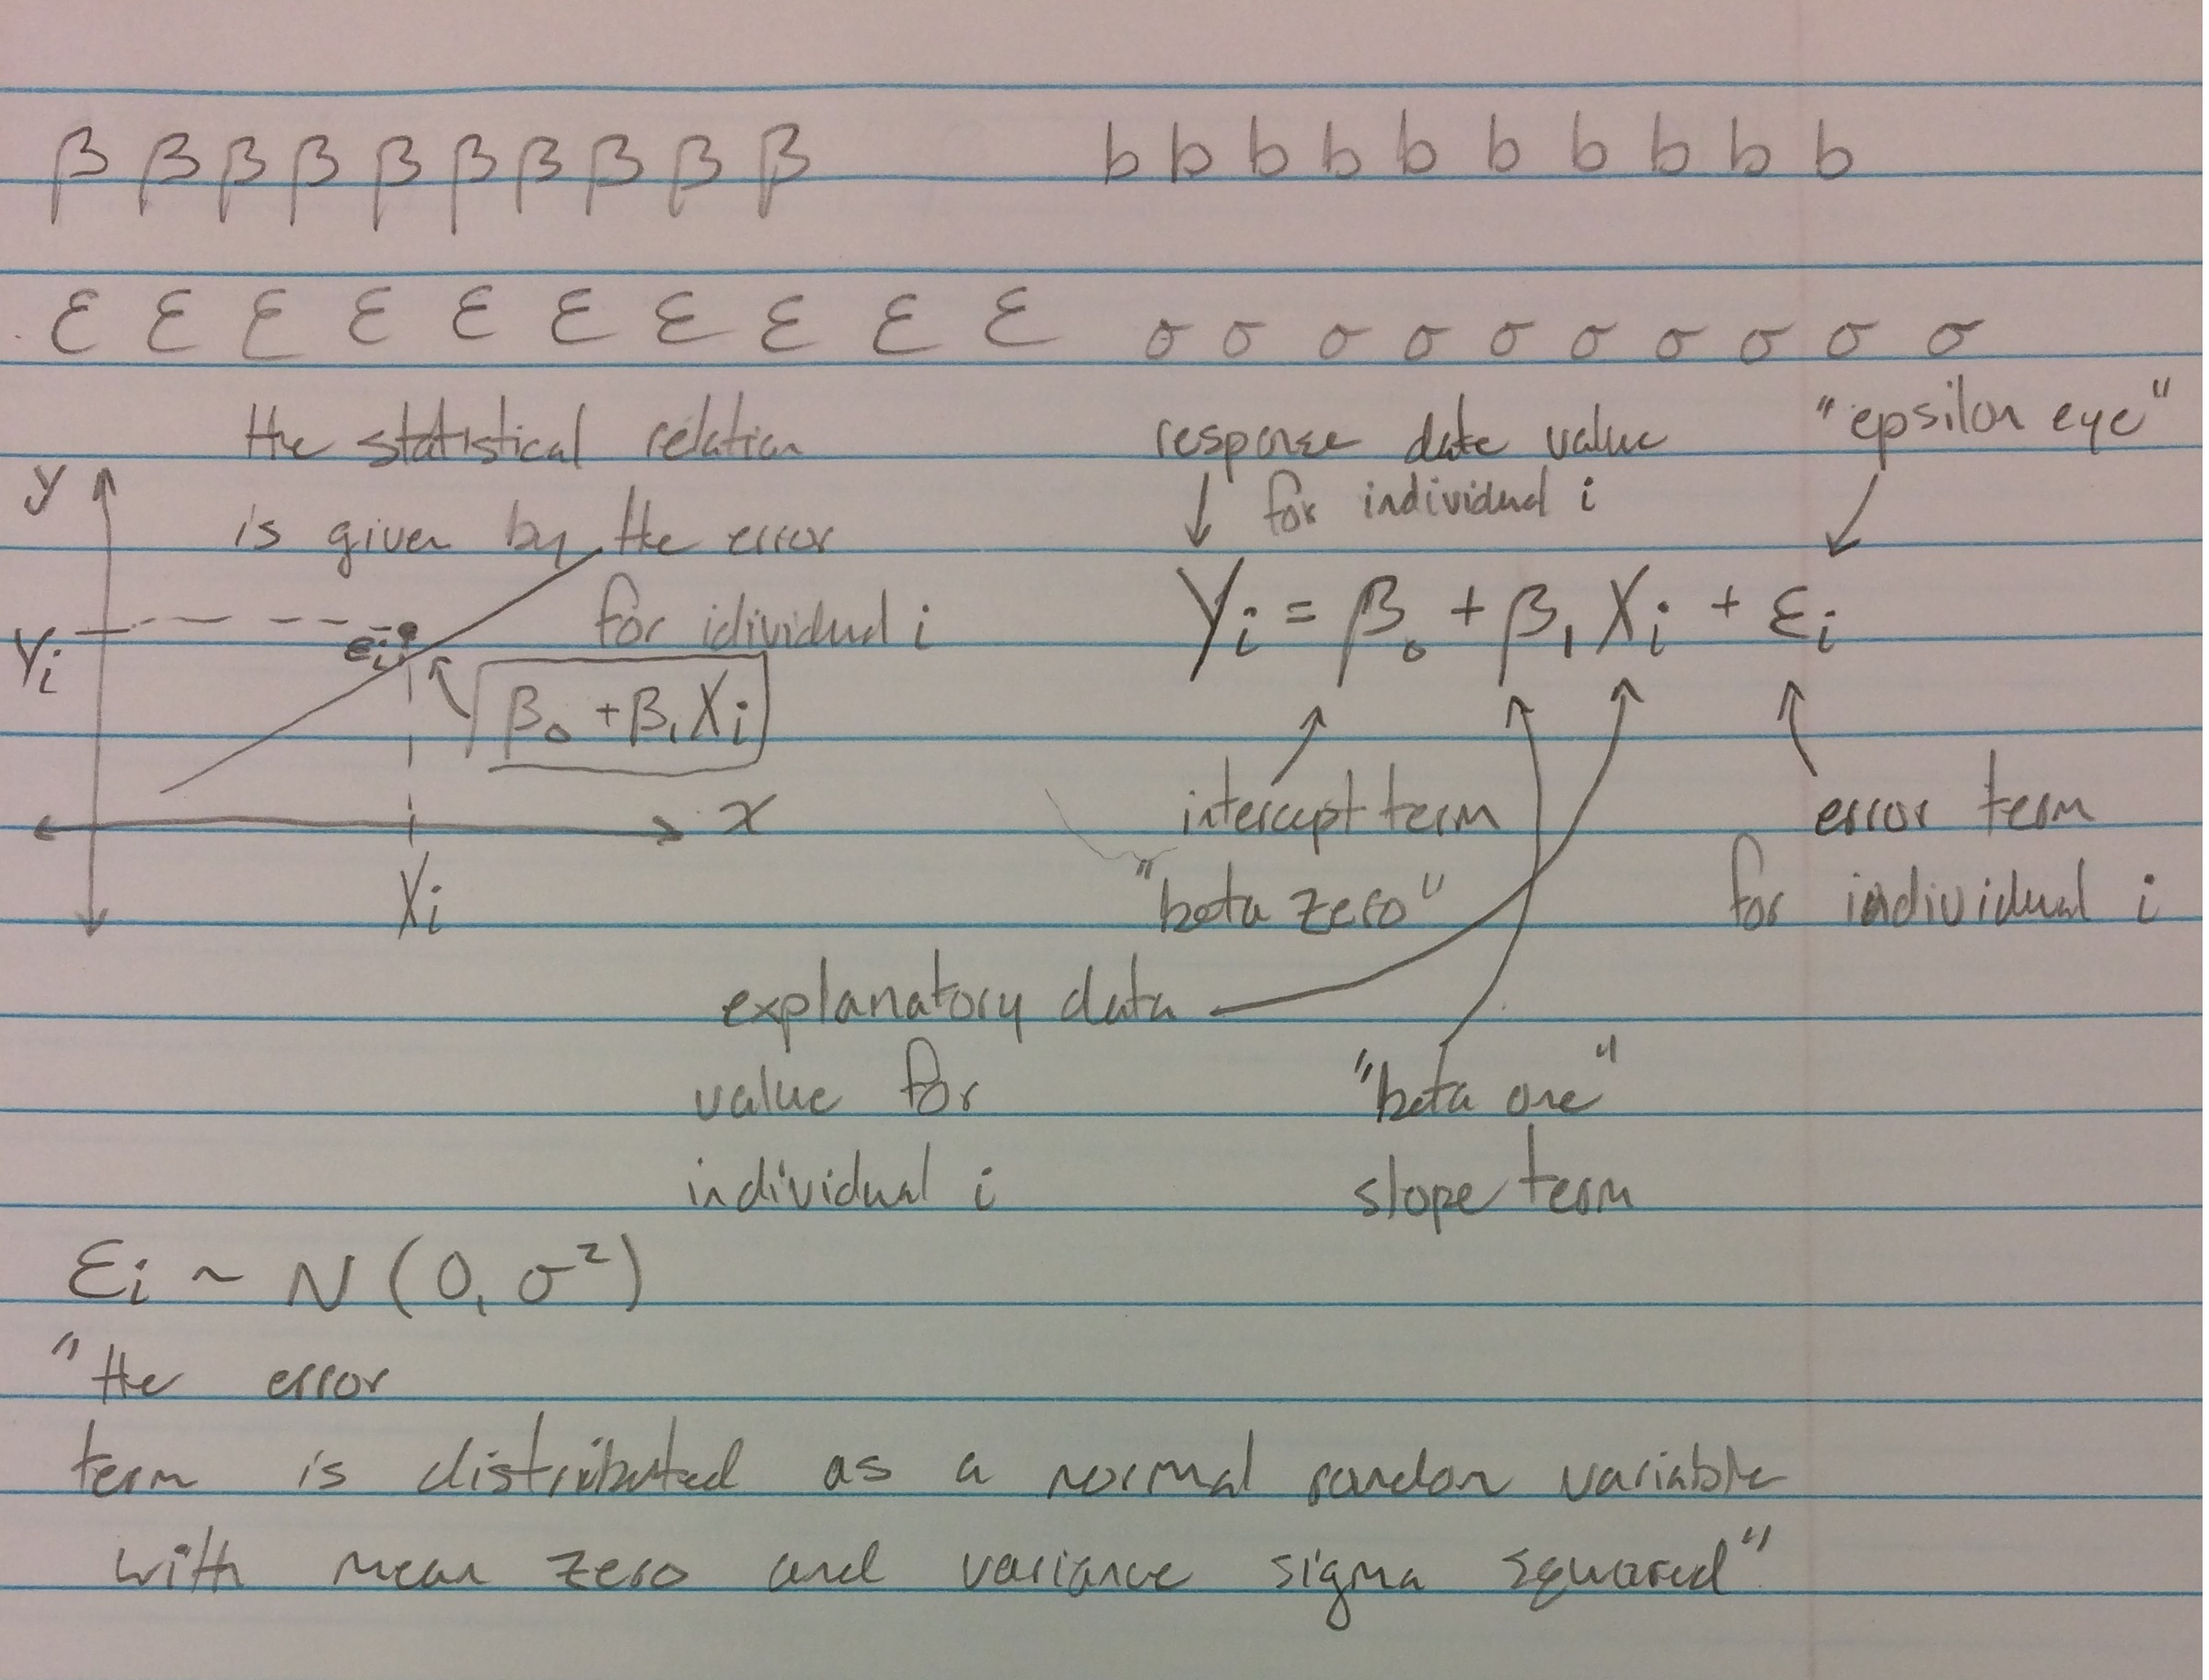 β β β β β β β β β β b b b b b b b b b b
ε ε ε ε ε ε ε ε ε ε σ σ σ σ σ σ σ σ σ σ
the statistical relation
is given by the error
for idividual i
y
Yi
εi
β₀ + β₁Xi
x
Xi
response date value
for individual i
"epsilon eye"
Yi = β₀ + β₁Xi + εi
intercept term
"beta zero"
error term
for individual i
explanatory data
value for
individual i
"beta one"
slope term
εi ~ N(0, σ²)
"the error
term is distributed as a normal random variable
with mean zero and variance sigma squared"